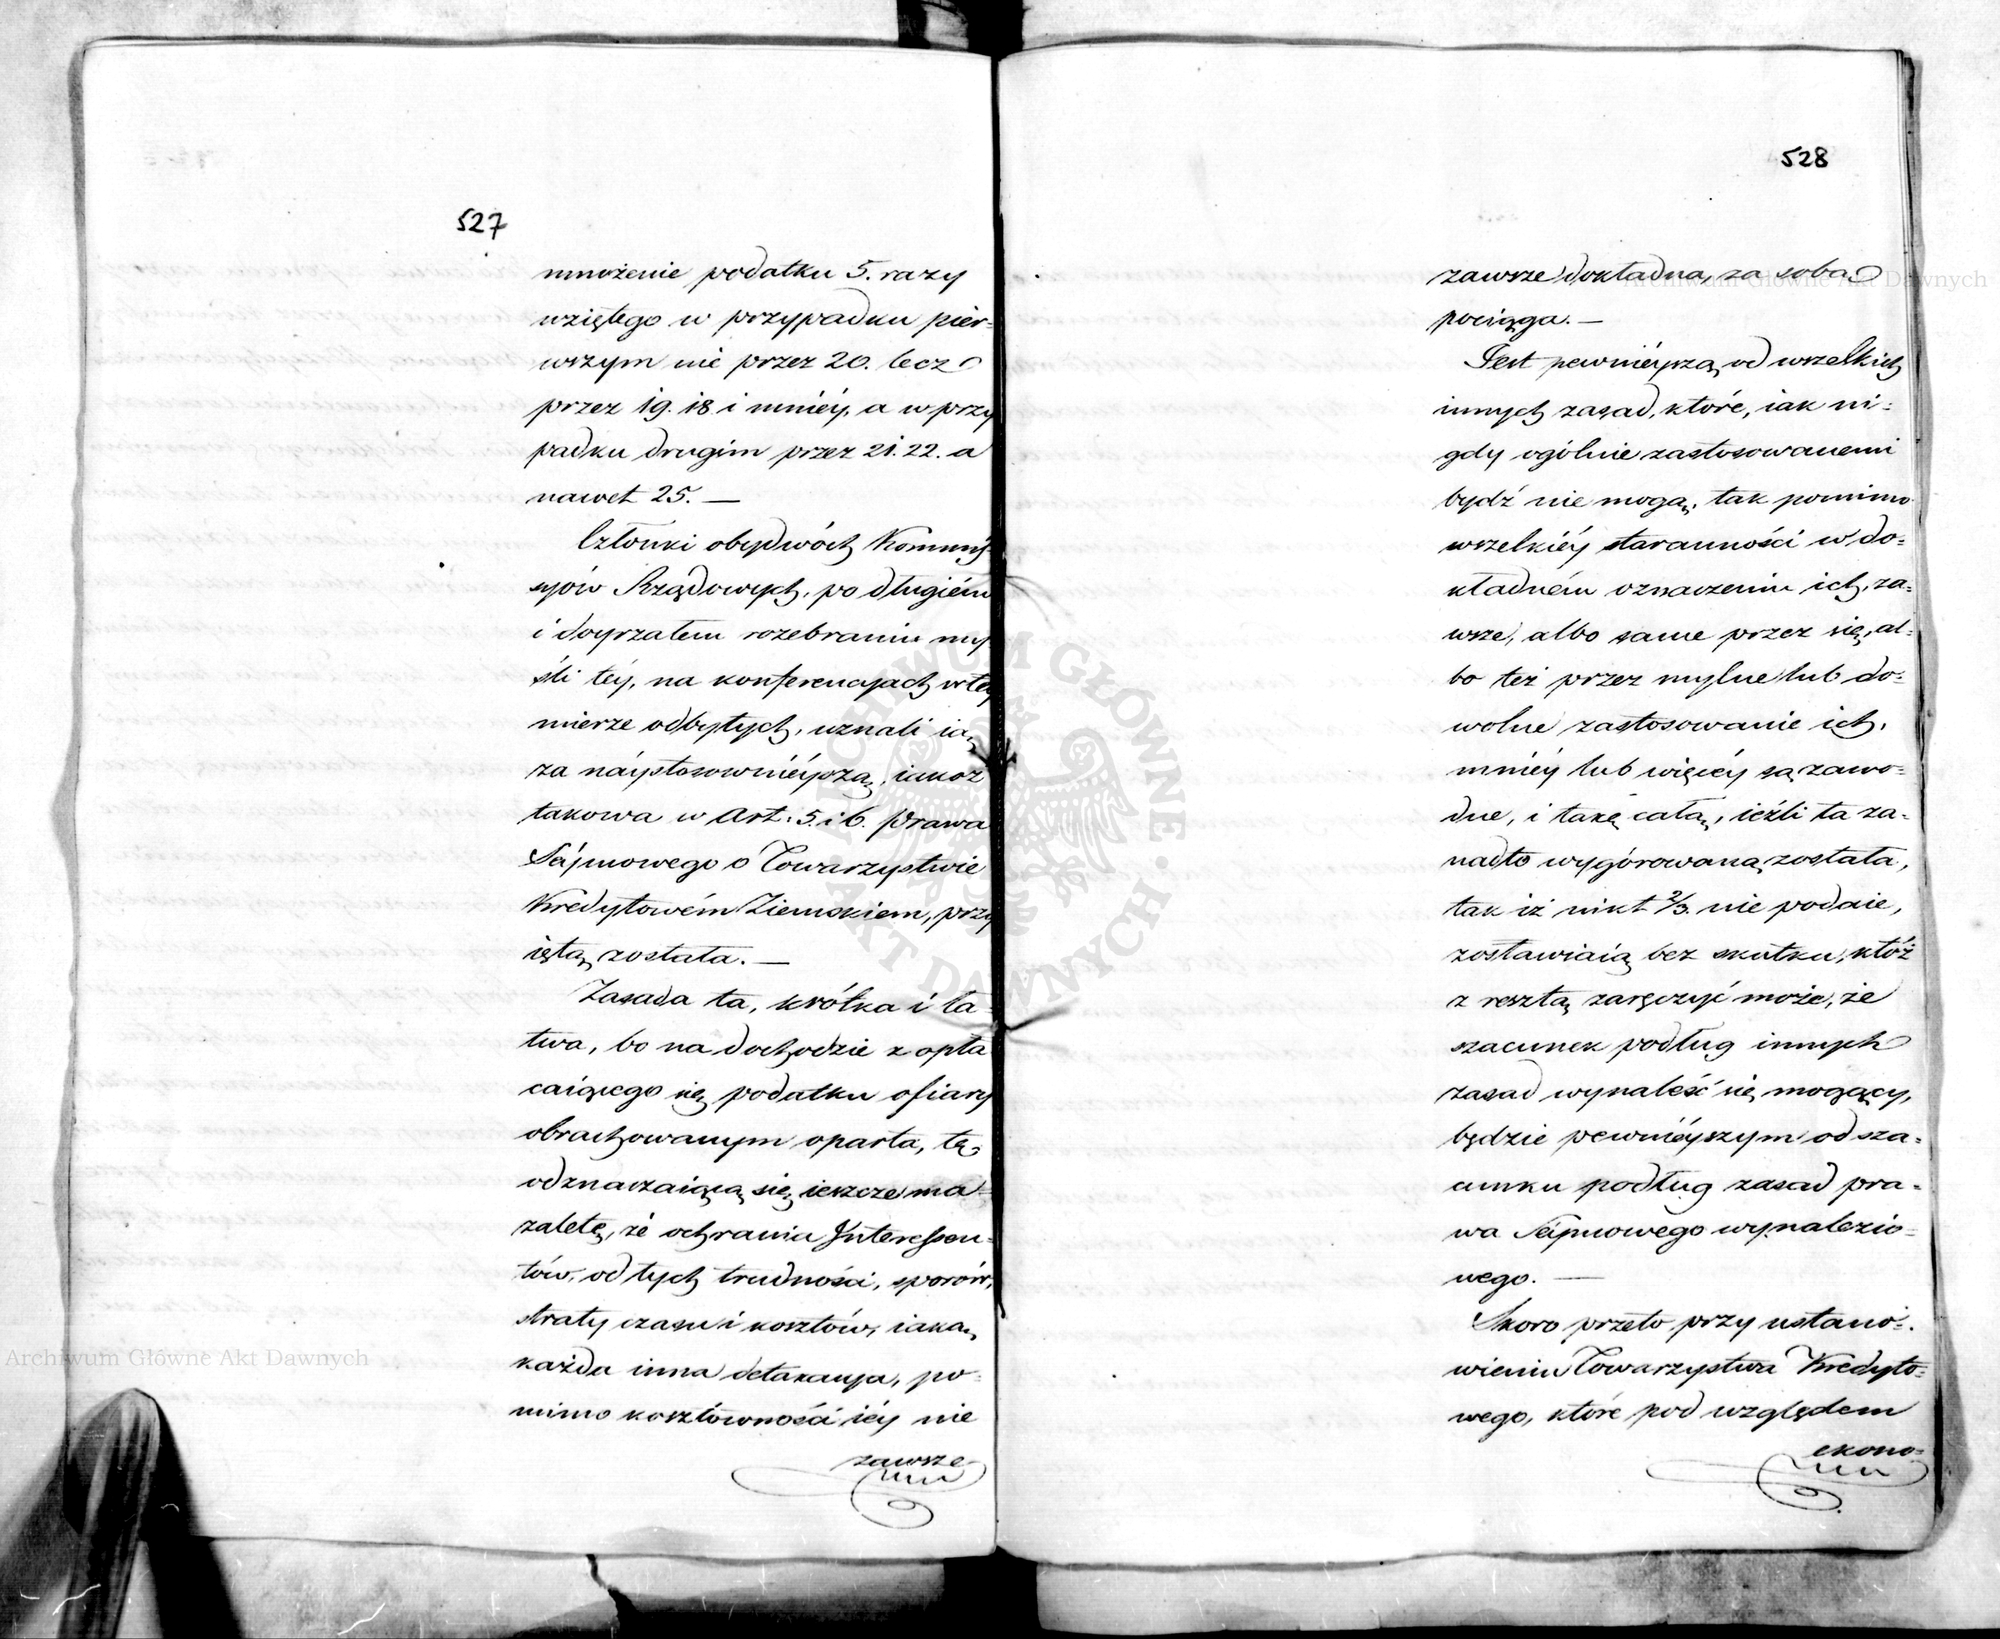 527
mnożenie podatku 5. razy
wziętego w przypadku pier-
wszym nie przez 20. lecz
przez 19. 18 i mniéy, a w przy
padku drugim przez 21. 22. a
nawet 25. —
Członki obydwóch Kommis-
syiów Rządowych, po długiém
i doyrzałem rozebraniu my
śli téy, na konferencyach w téy
mierze odbytych, uznali ią
za náystosownieyszą, iakoż
takowa w Art: 5. i 6. Prawa
Séymowego o Towarzystwie
Kredytowém Ziemskiem, przy
iętą została. —
Zasada ta, krótka i ła-
twa, bo na dochodzie z opła
caiącego się podatku ofiary
obrachowanym oparta, tę
odznaczaiącą się ieszcze ma
zaletę, że ochrania Interessen-
tów, od tych trudności, sporów,
straty czasu i kosztów, iaką
każda inna detaxacya, po-
mimo kosztowności iéy nie
zawsze
528
zawsze dokładna, za sobą
pociąga. —
Jest pewniéyszą od wszelkich
innych zasad, które, iak ni-
gdy ogólnie zastosowanemi
bydź nie mogą, tak pomimo
wszelkiéy staranności w do-
kładném oznaczeniu ich, za-
wsze, albo same przez się, al-
bo też przez mylne lub do-
wolne zastosowanie ich,
mniéy lub więcéy są zawo-
dne, i taxę całą, ieźli ta za-
nadto wygórowaną została,
tak iż nikt 2/3. nie podaie,
zostawiaią bez skutku, któż
z resztą zaręczyć może, że
szacunek podług innych
zasad wynaleść się mogący,
będzie pewniéyszym od sza-
cunku podług zasad pra-
wa Séymowego wynalezio-
nego. —
Skoro przeto przy ustano-
wieniu Towarzystwa Kredyto-
wego, które pod względem
ekono-
Archiwum Główne Akt Dawnych
Archiwum Główne Akt Dawnych
ARCHIWUM GŁÓWNE AKT DAWNYCH